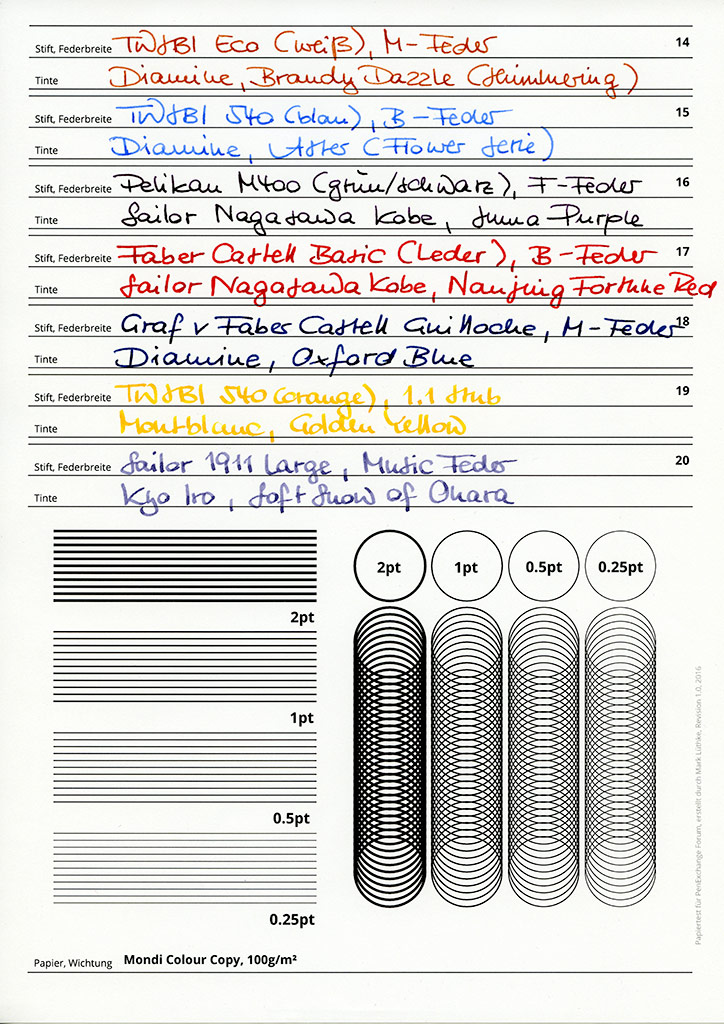 Stift, Federbreite TWSBI Eco (weiß), M-Feder 14
Tinte Diamine, Brandy Dazzle (Shimmering)
Stift, Federbreite TWSBI 540 (blau), B-Feder 15
Tinte Diamine, Aster (Flower Serie)
Stift, Federbreite Pelikan M400 (grün/schwarz), F-Feder 16
Tinte Sailor Nagasawa Kobe, Suma Purple
Stift, Federbreite Faber Castell Basic (Leder), B-Feder 17
Tinte Sailor Nagasawa Kobe, Nanjing Fortune Red
Stift, Federbreite Graf v Faber Castell Guilloche, M-Feder 18
Tinte Diamine, Oxford Blue
Stift, Federbreite TWSBI 540 (orange), 1.1 Stub 19
Tinte Montblanc, Golden Yellow
Stift, Federbreite Sailor 1911 Large, Music Feder 20
Tinte Kyo Iro, Soft Snow of Ohara
2pt 1pt 0.5pt 0.25pt
2pt
1pt
0.5pt
0.25pt
Papiertest für PenExchange Forum, erstellt durch Mark Lüthke, Revision 1.0, 2016
Papier, Wichtung Mondi Colour Copy, 100g/m²